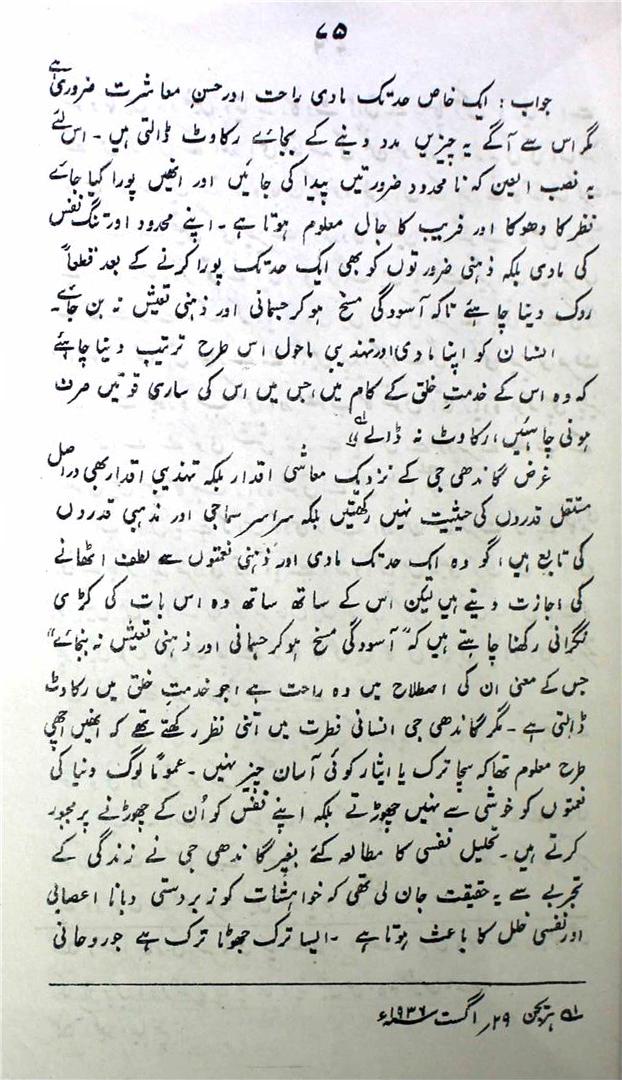 ۷۵
جواب: ایک خاص حد تک مادی راحت اور حسن معاشرت ضروری ہے
مگر اس سے آگے یہ چیزیں مدد دینے کے بجائے رکاوٹ ڈالتی ہیں۔ اس لئے
یہ نصب العین کہ نامحدود ضرورتیں پیدا کی جائیں اور انھیں پورا کیا جائے
نظر کا دھوکا اور فریب کا جال معلوم ہوتا ہے۔ اپنے محدود اور تنگ نفس
کی مادی بلکہ ذہنی ضرورتوں کو بھی ایک حد تک پورا کرنے کے بعد قطعاً
روک دینا چاہئے تاکہ آسودگی مسخ ہو کر جسمانی اور ذہنی تعیش نہ بن جائے۔
انسان کو اپنا مادی اور تہذیبی ماحول اس طرح ترتیب دینا چاہئے
کہ وہ اس کے خدمتِ خلق کے کام میں، جس میں اس کی ساری قوتیں صرف
ہونی چاہئیں، رکاوٹ نہ ڈالے۔
غرض گاندھی جی کے نزدیک معاشی اقدار بلکہ تہذیبی اقدار بھی دراصل
مستقل قدروں کی حیثیت نہیں رکھتیں بلکہ سراسر سماجی اور مذہبی قدروں
کی تابع ہیں، گو وہ ایک حد تک مادی اور ذہنی نعمتوں سے لطف اٹھانے
کی اجازت دیتے ہیں لیکن اس کے ساتھ ساتھ وہ اس بات کی کڑی
نگرانی رکھنا چاہتے ہیں کہ "آسودگی مسخ ہو کر جسمانی اور ذہنی تعیش نہ بنجائے"
جس کے معنی ان کی اصطلاح میں وہ راحت ہے، جو خدمتِ خلق میں رکاوٹ
ڈالتی ہے۔ مگر گاندھی جی انسانی فطرت میں اتنی نظر رکھتے تھے کہ انھیں اچھی
طرح معلوم تھا کہ سچا ترک یا ایثار کوئی آسان چیز نہیں۔ عموماً لوگ دنیا کی
نعمتوں کو خوشی سے نہیں چھوڑتے بلکہ اپنے نفس کو اُن کے چھوڑنے پر مجبور
کرتے ہیں۔ تحلیل نفسی کا مطالعہ کئے بغیر گاندھی جی نے زندگی کے
تجربے سے یہ حقیقت جان لی تھی کہ خواہشات کو زبردستی دبانا اعصابی
اور نفسی خلل کا باعث ہوتا ہے۔ ایسا ترک جھوٹا ترک ہے جو روحانی
لہ ہریجن ۲۹ر اگست ۱۹۳۶ء